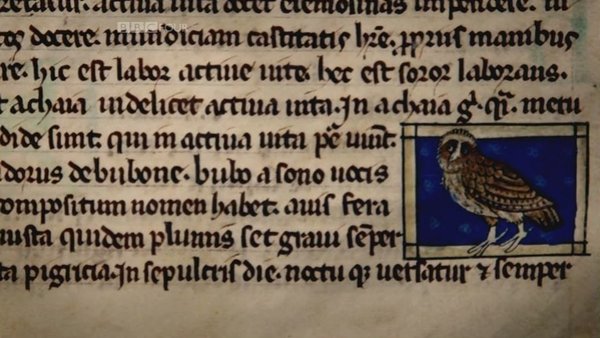 BBC FOUR
activa uita docet elemosinas impendere. in
docere. mundiciam castitatis hr̄e. pprus manibus
re. hic est labor actiue uite. hec est soror laborans.
t achaia uidelicet actiua uita. In achaia g̓. qr̄. metu
dide sunt. qui in actiua uita pfc̄ uiuunt.
idorus de bubone. bubo a sono uocis
compositum nomen habet. auis fera
usta quidem plumis set graui sēper
ta pigricia. in sepulcris die. noctu qꝫ uersatur ⁊ semper